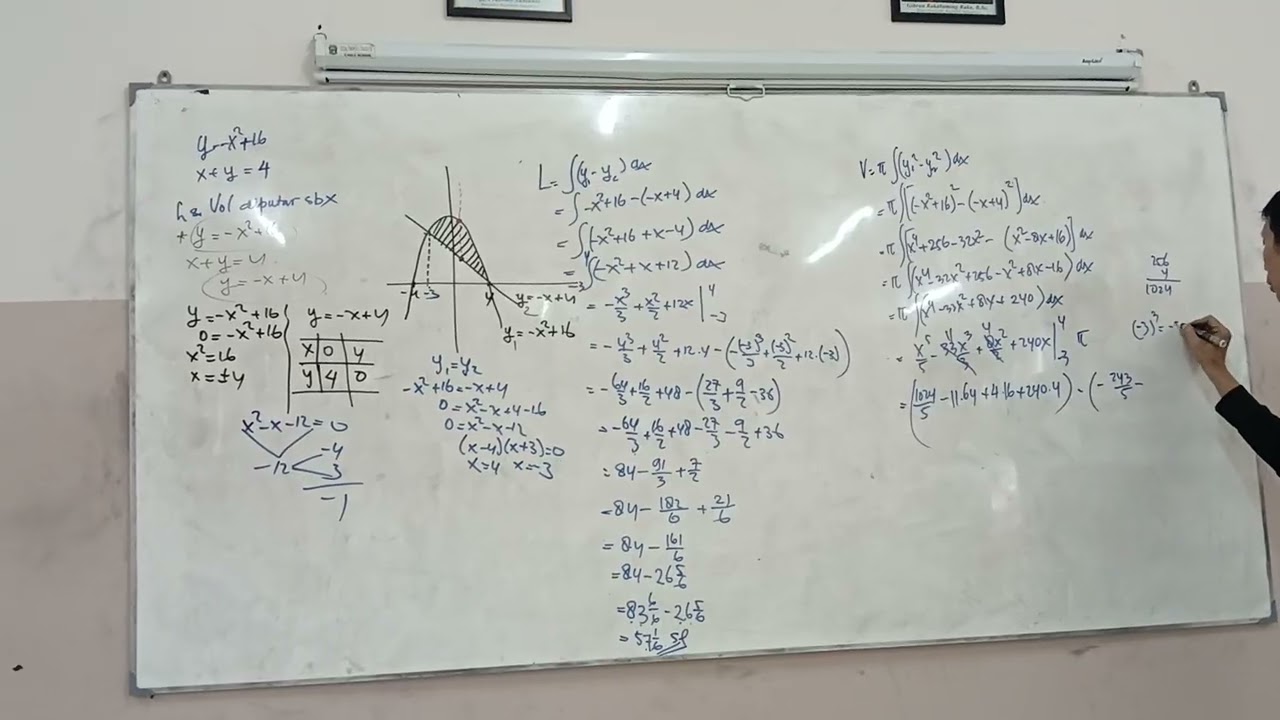 y=-x²+16
x+y=4
L & Vol diputar sbx
+(y=-x²+16
x+y=4
y=-x+4
y=-x²+16
0=-x²+16
x²=16
x=±4
y=-x+4
x 0 4
y 4 0
x²-x-12=0
-12
-4
3
-1
-4 -3 4
y₂=-x+4
y₁=-x²+16
y₁=y₂
-x²+16=-x+4
0=x²-x+4-16
0=x²-x-12
(x-4)(x+3)=0
x=4 x=-3
L=∫(y₁-y₂)dx
=∫-x²+16-(-x+4)dx
=∫(-x²+16+x-4)dx
=∫(-x²+x+12)dx
=-x³/3+x²/2+12x|⁴₋₃
=-4³/3+4²/2+12.4-(-(-3)³/3+(-3)²/2+12.(-3))
=-64/3+16/2+48-(27/3+9/2-36)
=-64/3+16/2+48-27/3-9/2+36
=84-91/3+7/2
=84-182/6+21/6
=84-161/6
=84-26 5/6
=83 6/6-26 5/6
=57 1/6
V=π∫(y₁²-y₂²)dx
=π∫[(-x²+16)²-(-x+4)²]dx
=π∫[x⁴+256-32x²-(x²-8x+16)]dx
=π∫(x⁴-32x²+256-x²+8x-16)dx
=π∫(x⁴-33x²+8x+240)dx
=x⁵/5-33x³/3+8x²/2+240x|⁴₋₃ π
=(1024/5-11.64+4.16+240.4)-(-243/5-
256
4
1024
(-3)³=-